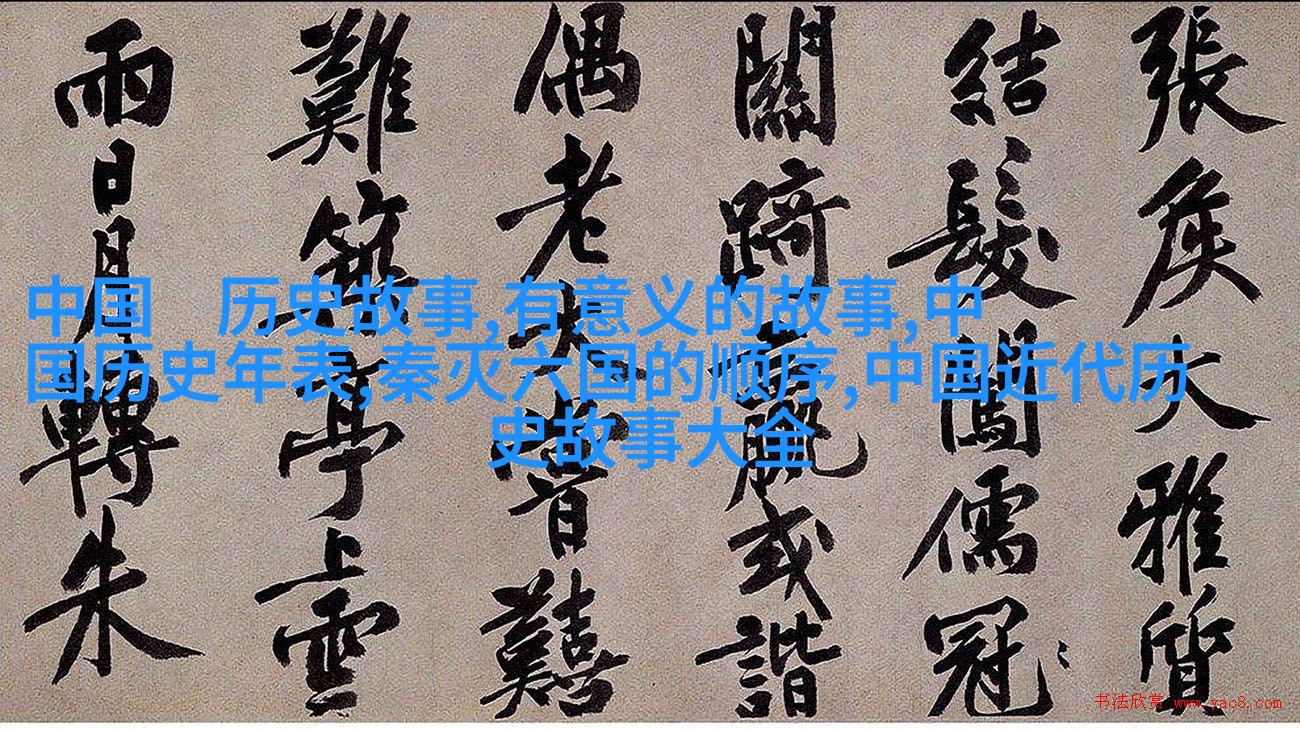 中国 历史故事,有意义的故事,中
国历史年表,秦灭六国的顺序,中国近代历
史故事大全
張侯大雅質
結髮闖儒冠
關踦或諧
偶老大
難築亭上雲
雨日月轉朱
书法欣赏 www.yac8.com